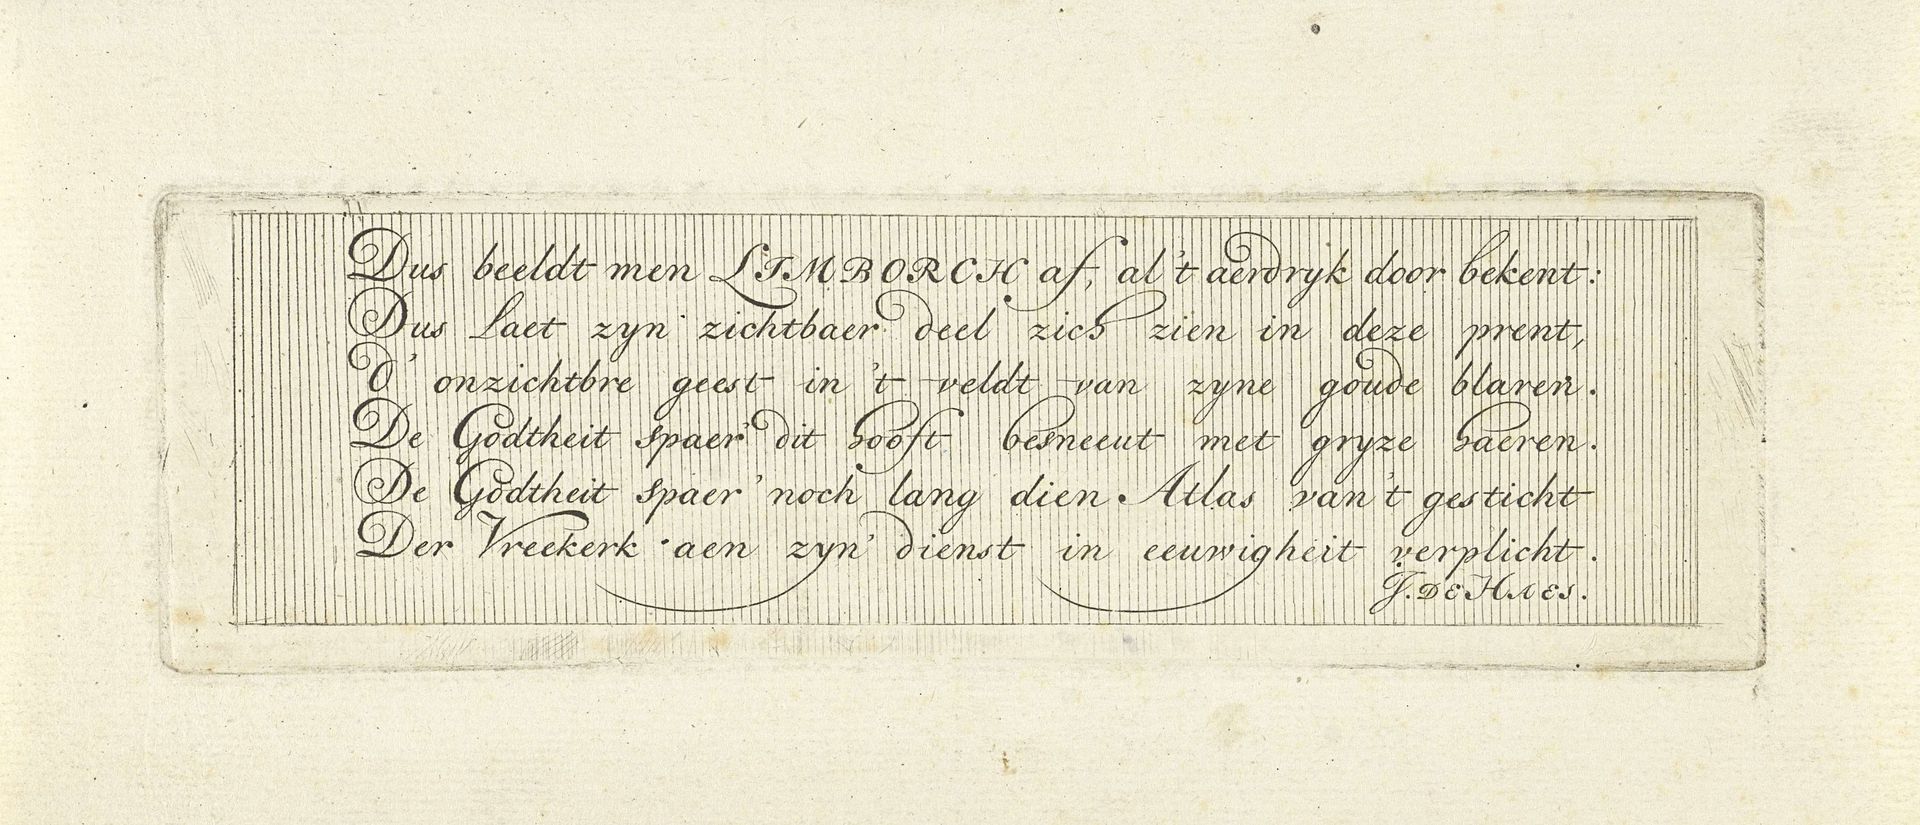 Dus beeldt men LIMBORCH af, al 't aerdryk door bekent:
Dus laet zyn zichtbaer deel zich zien in deze prent,
d' onzichtbre geest in 't veldt van zyne goude blaren.
De Godtheit spaer' dit hooft besneeut met gryze haeren.
De Godtheit spaer' noch lang dien Atlas van 't gesticht
Der Vreekerk aen zyn' dienst in eeuwigheit verplicht.
J. DE HAES.